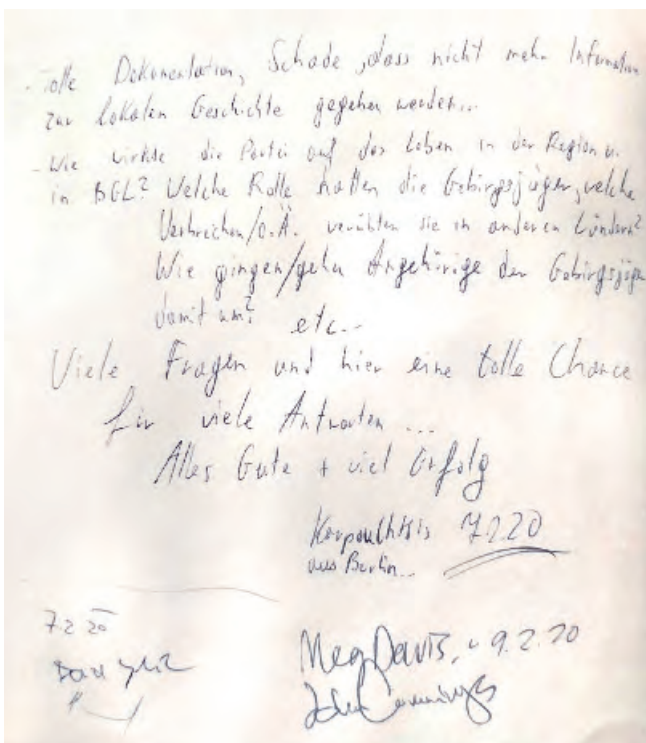 - Tolle Dokumentation, Schade, dass nicht mehr Information
zur lokalen Geschichte gegeben werden...
- Wie wirkte die Partei auf das Leben in der Region u.
in BGL? Welche Rolle hatten die Gebirgsjäger, welche
Verbrechen/o.Ä. verübten sie in anderen Ländern?
Wie gingen/gehn Angehörige der Gebirgsjäger
damit um? etc...
Viele Fragen und hier eine tolle Chance
für viele Antworten ...
Alles Gute + viel Erfolg
7.2.20
aus Berlin...
7.2.20
Meg Davis, 9.2.20
John Cummings